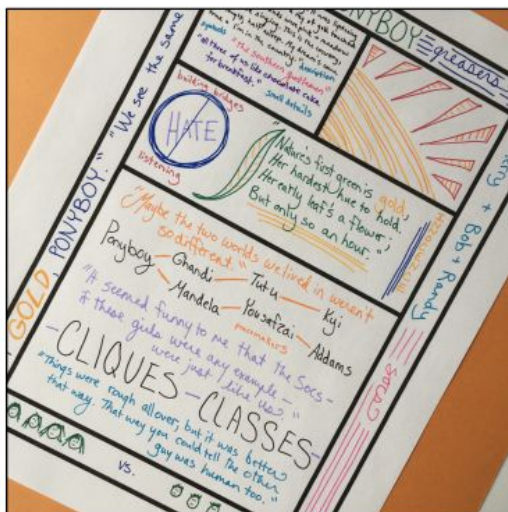 PONYBOY
greasers
symbols
description
"The Southern gentlemen"
"all three of us like chocolate cake
for breakfast."
small details
building bridges
HATE
listening
"Nature's first green is gold,
Her hardest hue to hold.
Her early leaf's a flower;
But only so an hour."
"Maybe the two worlds we lived in weren't
so different."
Ponyboy
Ghandi
Tutu
Kyi
Mandela
Yousafzai
Addams
peacemakers
"It seemed funny to me that the Socs-
if these girls were any example-
were just like us."
CLIQUES - CLASSES
"Things were rough all over, but it was better
that way. That way you could tell the other
guy was human too."
vs.
GOLD, PONYBOY."
"We see the same
+ Bob + Randy
Socs